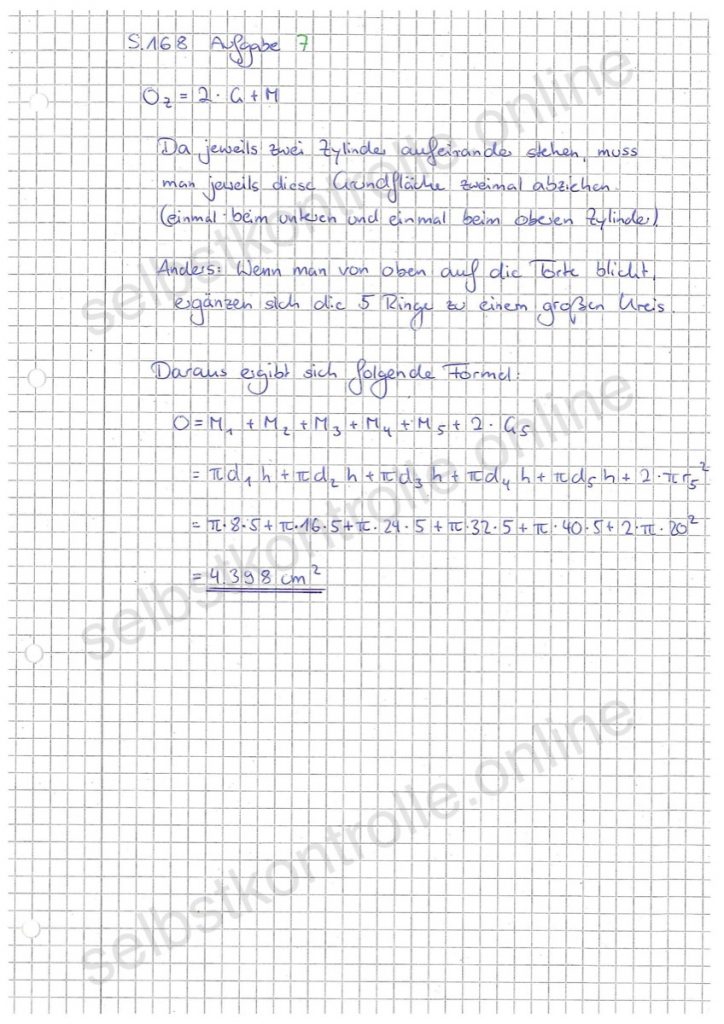 S.168 Aufgabe 7
O_Z = 2 · G + M
Da jeweils zwei Zylinder aufeinander stehen, muss
man jeweils diese Grundfläche zweimal abziehen.
(einmal beim unteren und einmal beim oberen Zylinder).
Anders: Wenn man von oben auf die Torte blickt,
ergänzen sich die 5 Ringe zu einem großen Kreis.
Daraus ergibt sich folgende Formel:
O = M₁ + M₂ + M₃ + M₄ + M₅ + 2 · G₅
= πd₁h + πd₂h + πd₃h + πd₄h + πd₅h + 2 · πr₅²
= π·8·5 + π·16·5 + π·24·5 + π·32·5 + π·40·5 + 2·π·20²
= 4.398 cm²
selbstkontrolle.online
selbstkontrolle.online
selbstkontrolle.online